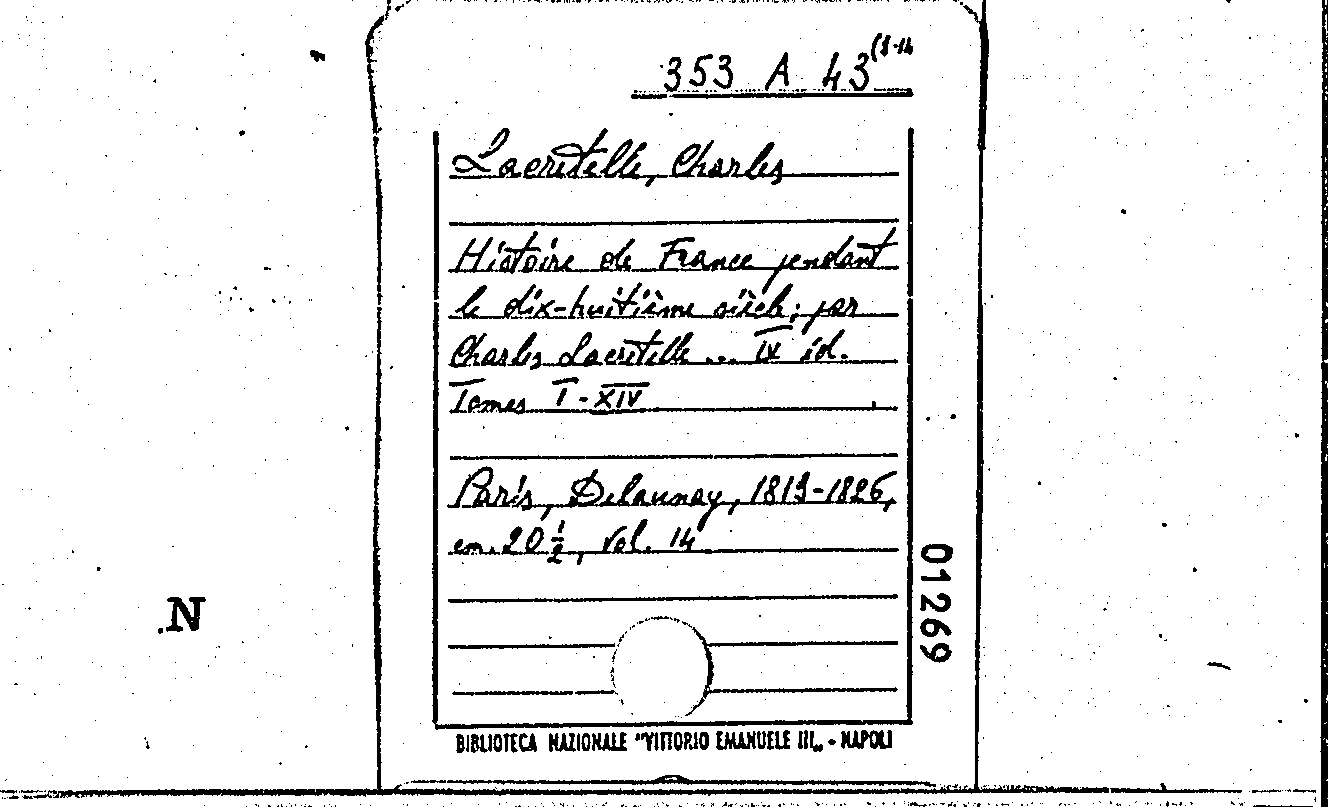 353 A 43 (1-14
Lacretelle, Charles
Histoire de France pendant
le dix-huitième siècle; par
Charles Lacretelle ... IV éd.
Tomes I-XIV
Paris, Delaunay, 1819-1826,
cm. 20 ½, Vol. 14
01269
N
BIBLIOTECA NAZIONALE "VITTORIO EMANUELE III„ - NAPOLI